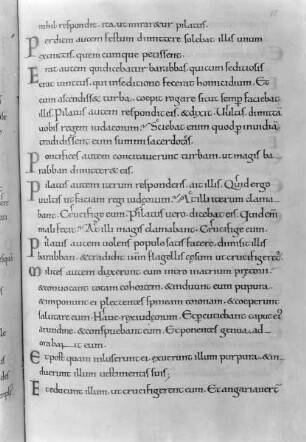 nihil respondit. ita ut miraretur pilatus.
Per diem autem festum dimittere solebat illis unum
ex uinctis, quemcumque petissent.
Erat autem qui dicebatur barabbas. qui cum seditiosis
erat uinctus, qui in seditione fecerat homicidium. Et
cum ascendisset turba, coepit rogare sicut semp faciebat
illis. Pilatus autem respondit eis. & dixit. Uultis dimittā
uobis regem iudaeorum? Sciebat enim quod p inuidiā
tradidissent eum summi sacerdotes.
Pontifices autem concitauerunt turbam. ut magis ba
rabban dimitter& eis.
Pilatus autem iterum respondens. ait illis. Quid ergo
uultis ut faciam regi iudeorum? At illi iterum clama
bant. Crucifige eum. Pilatus uero. dicebat eis. Quid enī
mali fecit? At illi magis clamabant. Crucifige eum.
Pilatus autem uolens populo satisfacere. dimisit illis
barabban. & tradidit iħm flagellis cęsum ut crucifiger&ur.
Milites autem duxerunt eum intro in atrium pretorii.
& conuocant totam cohortem. & induunt eum purpura.
& inponunt ei plectentes spineam coronam. & coeperunt
salutare eum. Haue rex iudęorum. Et percutiebant caput ei;
arundine. & conspuebant eum. Et ponentes genua, ad
orabant eum.
Et postquam inluserunt ei. exuerunt illum purpura. & in
duerunt illum uestimentis suis;
Et educunt illum. ut crucifigerent eum. Et angariauerꝉ